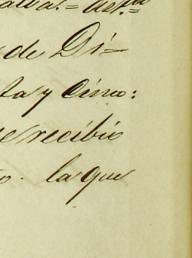 de Di=
ta y Cinco:
e recibio
o. la que